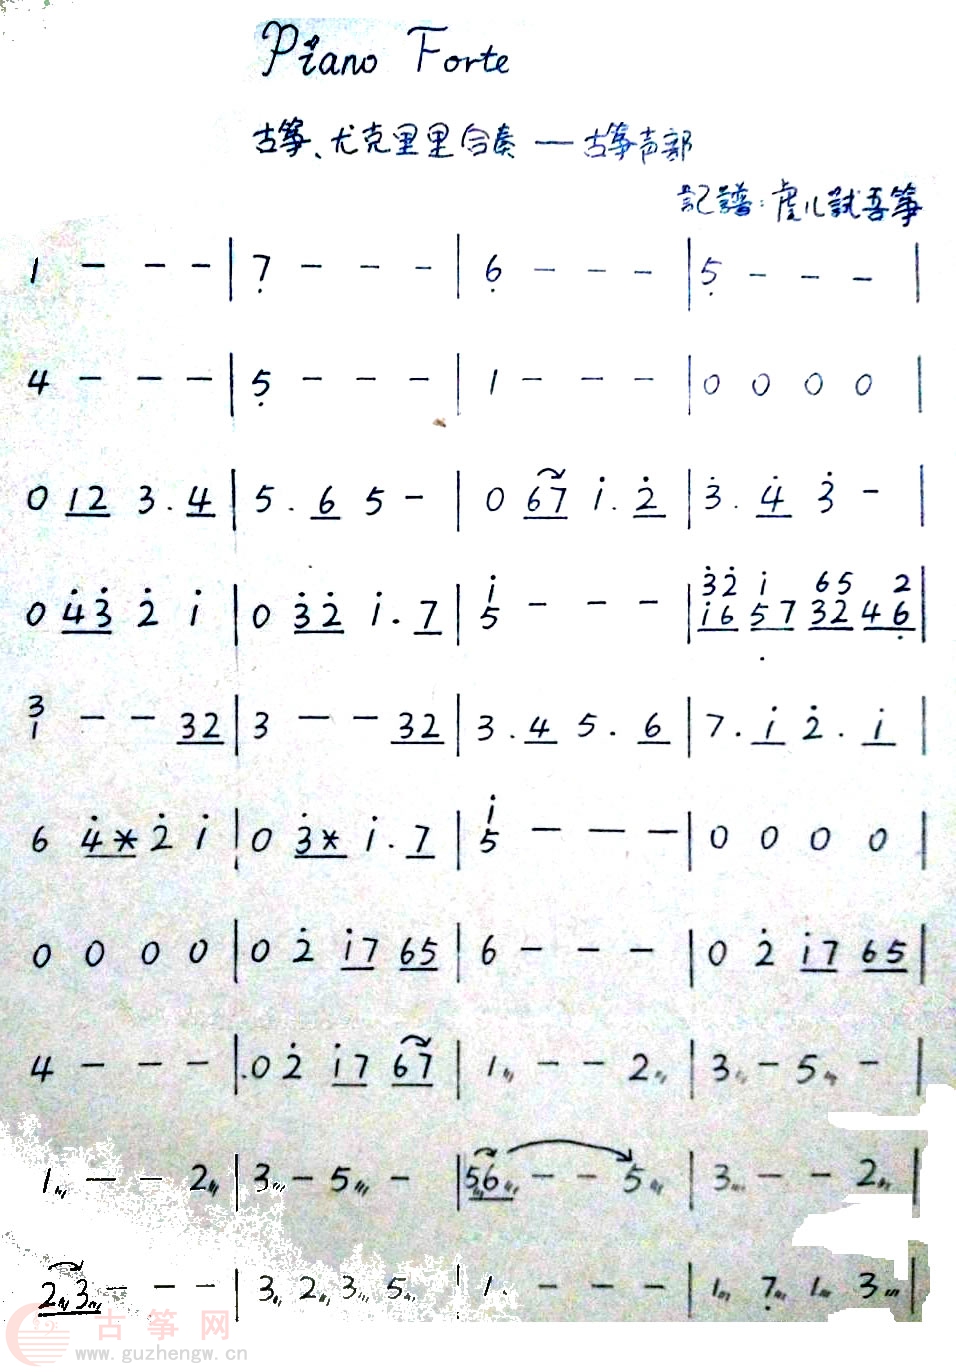 Piano Forte
古筝、尤克里里合奏 — 古筝声部
記譜：虎儿試吾筝
1 - - - | 7̣ - - - | 6̣ - - - | 5̣ - - - |
4 - - - | 5̣ - - - | 1 - - - | 0 0 0 0 |
0 12 3 . 4 | 5 . 6 5 - | 0 67 i . 2̇ | 3̇ . 4̇ 3̇ - |
0 4̇3̇ 2̇ i | 0 3̇2̇ i . 7 | i - - - | 3̇2̇ i 65 2
5 i6 5̣7 32 46̣ |
3 - - 32 | 3 - - 32 | 3 . 4 5 . 6 | 7 . i 2̇ . i |
1
6 4̇* 2̇ i | 0 3̇* i . 7 | i - - - | 0 0 0 0 |
5
0 0 0 0 | 0 2̇ i7 65 | 6 - - - | 0 2̇ i7 65 |
4 - - - | 0 2̇ i7 67 | 1 - - 2 | 3 - 5 - |
1 - - 2 | 3 - 5 - | 56 - - 5 | 3 - - 2 |
23 - - - | 3 2 3 5 | 1 - - - | 1 7̣ 1 3 |
古筝网
www.guzhengw.cn